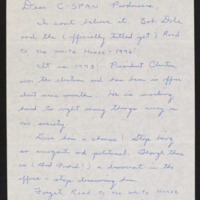 Dear C-SPAN Producers,
I can't believe it. Bob Dole
and the (officially titled yet) "Road
to the White House - 1996"
It is 1993! President Clinton
won the election and has been in office
for weeks. He is working
hard to right many things away in
our society.
Give him a chance! Stop being
so arrogant and political. George Bush
is (thank
office - stop
Forget Road to the White House